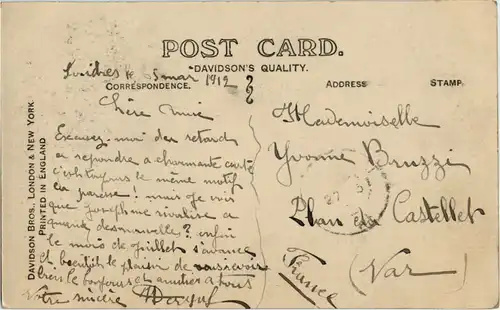 POST CARD.
DAVIDSON'S QUALITY.
Londres le 5 mar 1912
CORRESPONDENCE.
ADDRESS
STAMP
Chère Amie
Excusez-moi du retard
a repondre a charmante carte
c'est toujours le même motif
la paresse! mais je vois
que Josephine rivalise a
quand des nouvelle? enfin
le mois de Juillet s'avance
et bientôt le plaisir de vous revoir
bonjours et amitiés a tous
Votre sincère
Mademoiselle
Yvonne Bruzzi
Plan du Castellet
(Var)
France
DAVIDSON BROS., LONDON & NEW YORK
PRINTED IN ENGLAND